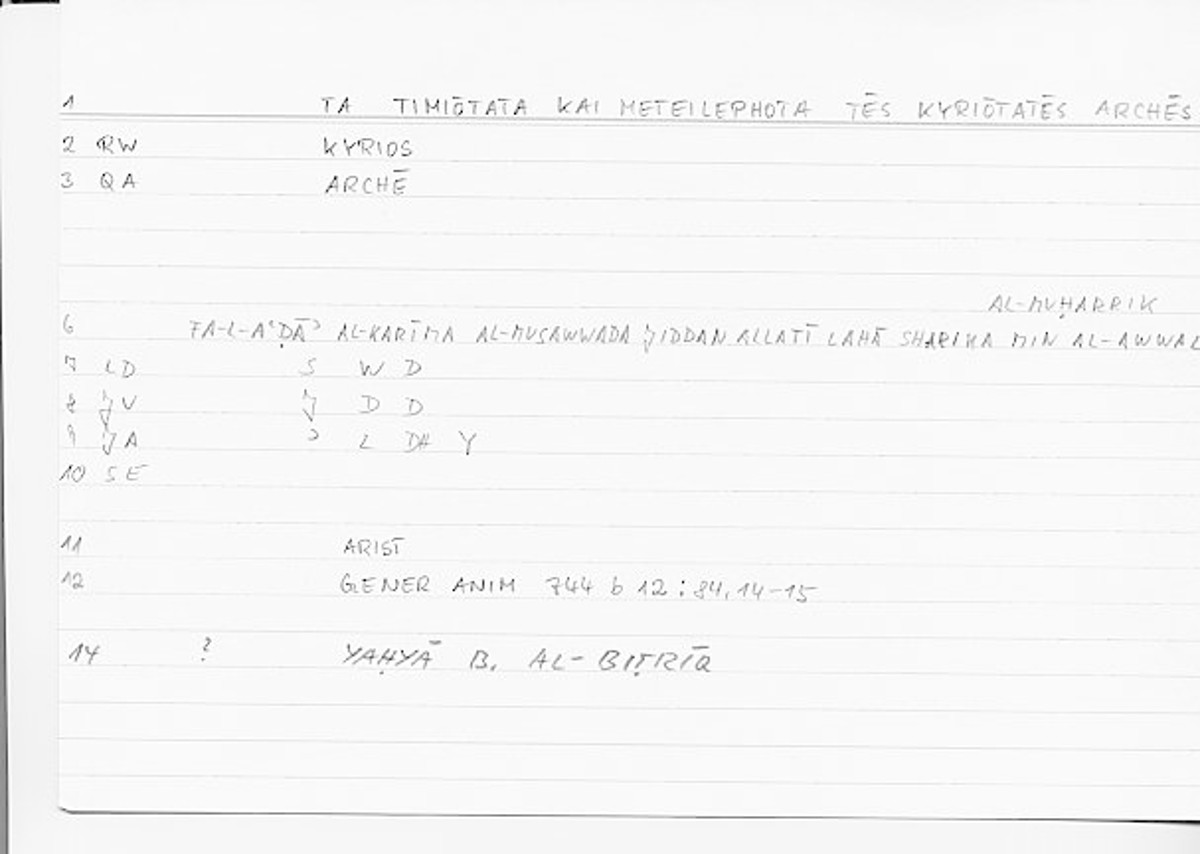 1 TA TIMIŌTATA KAI METEILEPHOTA TĒS KYRIŌTATĒS ARCHĒS
2 RW KYRIOS
3 QA ARCHĒ
AL-MUḤARRIK
6 FA-L-AʿḌĀʾ AL-KARĪMA AL-MUSAWWADA JIDDAN ALLATĪ LAHĀ SHARIKA MIN AL-AWWAL
7 LD S W D
8 JU J D D
9 JA ʾ L DH Y
10 SE
11 ARIST
12 GENER ANIM 744 b 12 : 84,14-15
14 ? YAḤYĀ B. AL-BIṬRĪQ